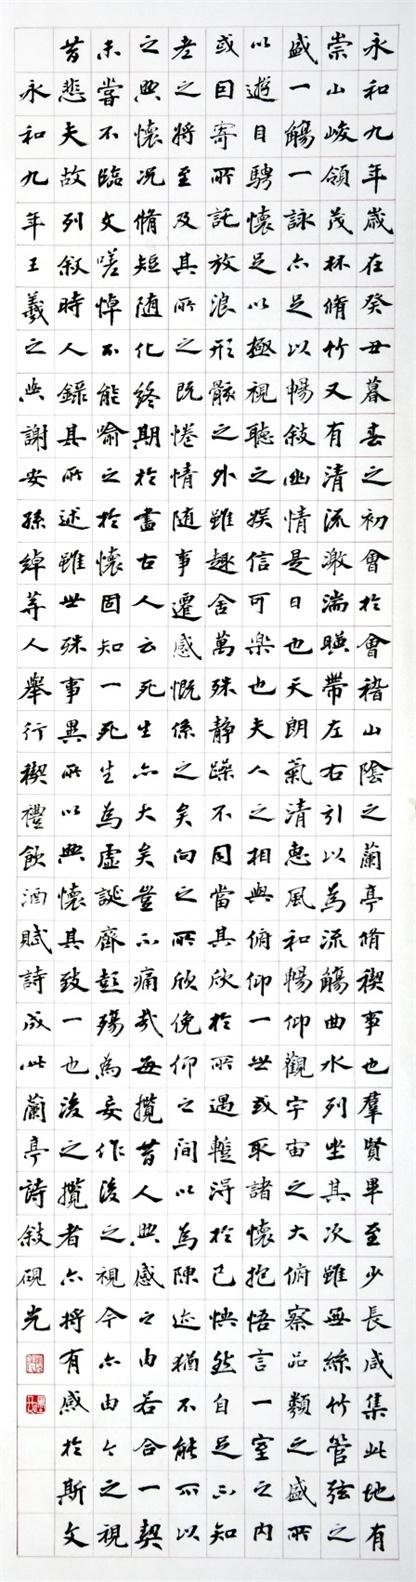 永和九年歲在癸丑暮春之初會於會稽山陰之蘭亭脩禊事也羣賢畢至少長咸集此地有
崇山峻領茂林脩竹又有清流激湍暎帶左右引以為流觴曲水列坐其次雖無絲竹管弦之
盛一觴一詠亦足以暢敍幽情是日也天朗氣清惠風和暢仰觀宇宙之大俯察品類之盛所
以遊目騁懷足以極視聽之娛信可樂也夫人之相與俯仰一世或取諸懷抱悟言一室之內
或因寄所託放浪形骸之外雖趣舍萬殊静躁不同當其欣於所遇蹔得於己怏然自足不知
老之將至及其所之既惓情随事遷感慨係之矣向之所欣俛仰之間以為陳迹猶不能不以
之興懷況脩短随化終期於盡古人云死生亦大矣豈不痛哉每攬昔人興感之由若合一契
未嘗不臨文嗟悼不能喻之於懷固知一死生為虛誕齊彭殤為妄作後之視今亦由今之視
昔悲夫故列敍時人錄其所述雖世殊事異所以興懷其致一也後之攬者亦將有感於斯文
永和九年王羲之與謝安孫綽等人舉行禊禮飲酒賦詩成此蘭亭詩敍硯光